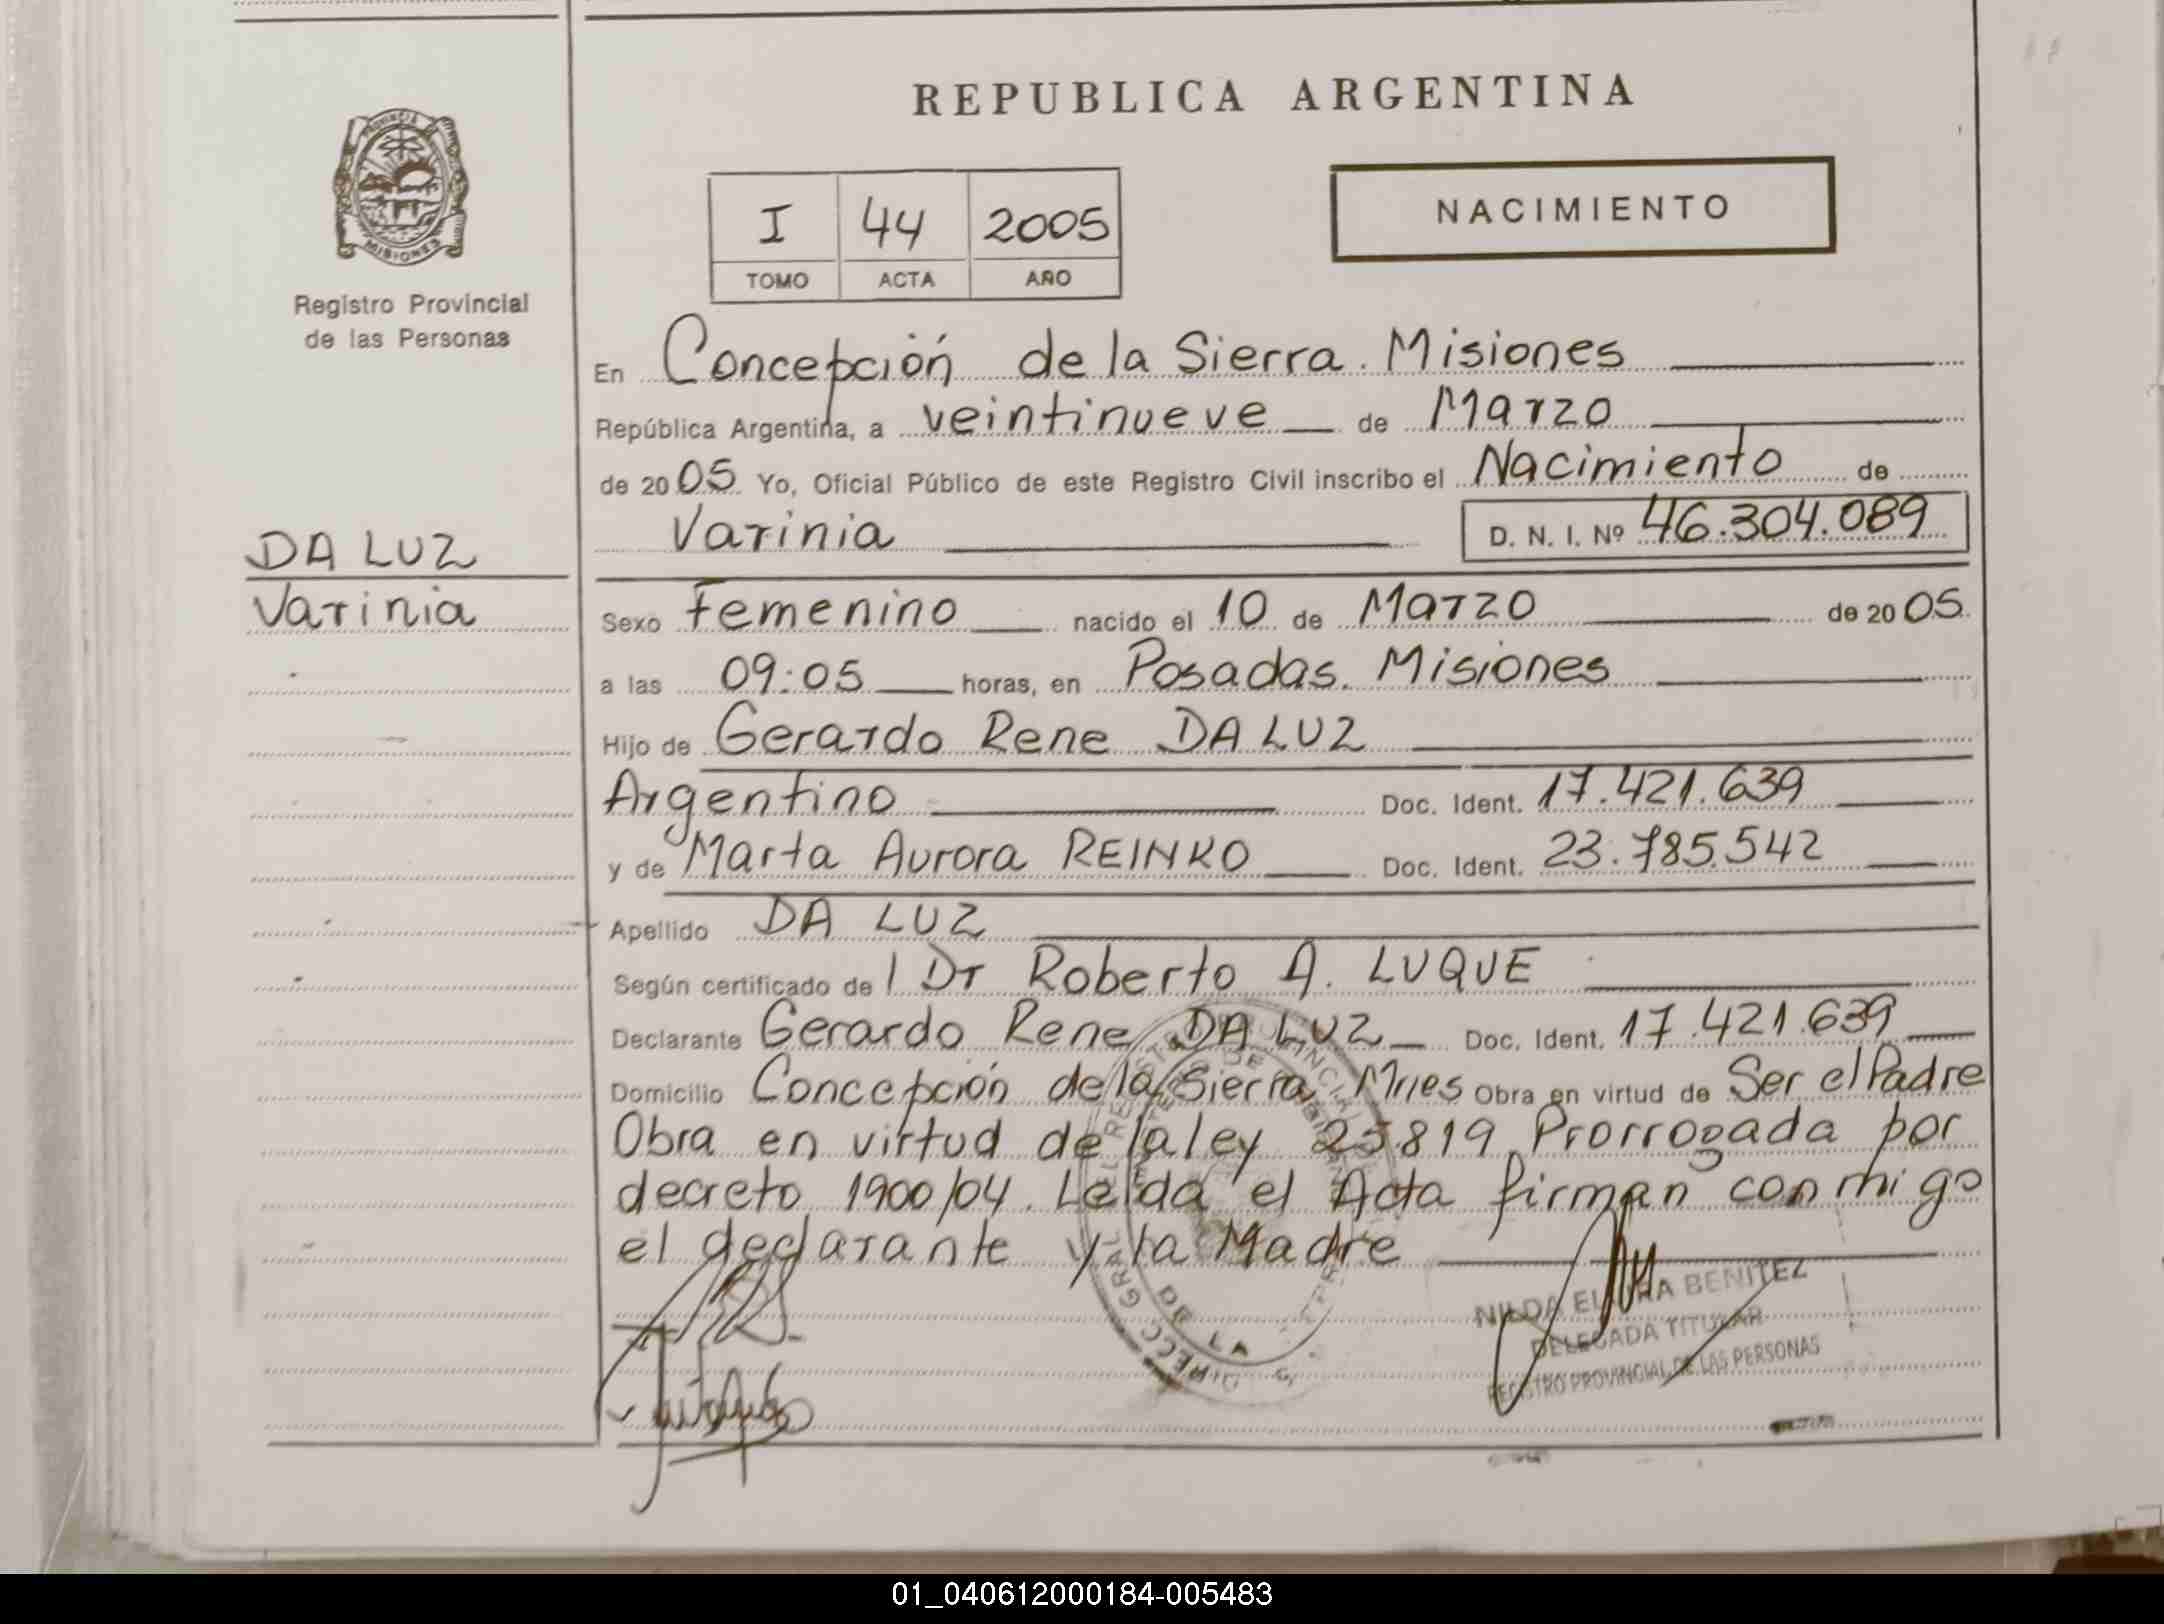 REPUBLICA ARGENTINA
PROVINCIA
MISIONES
Registro Provincial
de las Personas
I 44 2005
TOMO ACTA AÑO
NACIMIENTO
En Concepción de la Sierra. Misiones
República Argentina, a veintinueve de Marzo
de 2005 Yo, Oficial Público de este Registro Civil inscribo el Nacimiento de
Varinia D. N. I. Nº 46.304.089
DA LUZ
Varinia
Sexo Femenino nacido el 10 de Marzo de 2005
a las 09:05 horas, en Posadas. Misiones
Hijo de Gerardo Rene DA LUZ
Argentino Doc. Ident. 17.421.639
y de Marta Aurora REINKO Doc. Ident. 23.785.542
Apellido DA LUZ
Según certificado de l Dr Roberto A. LUQUE
Declarante Gerardo Rene DA LUZ Doc. Ident. 17.421.639
Domicilio Concepción de la Sierra Mnes Obra en virtud de Ser el Padre
Obra en virtud de la ley 25.819 Prorrogada por
decreto 1900/04. Leída el Acta firman conmigo
el declarante y la Madre
NILDA ELVIRA BENITEZ
DELEGADA TITULAR
REGISTRO PROVINCIAL DE LAS PERSONAS
01_040612000184-005483